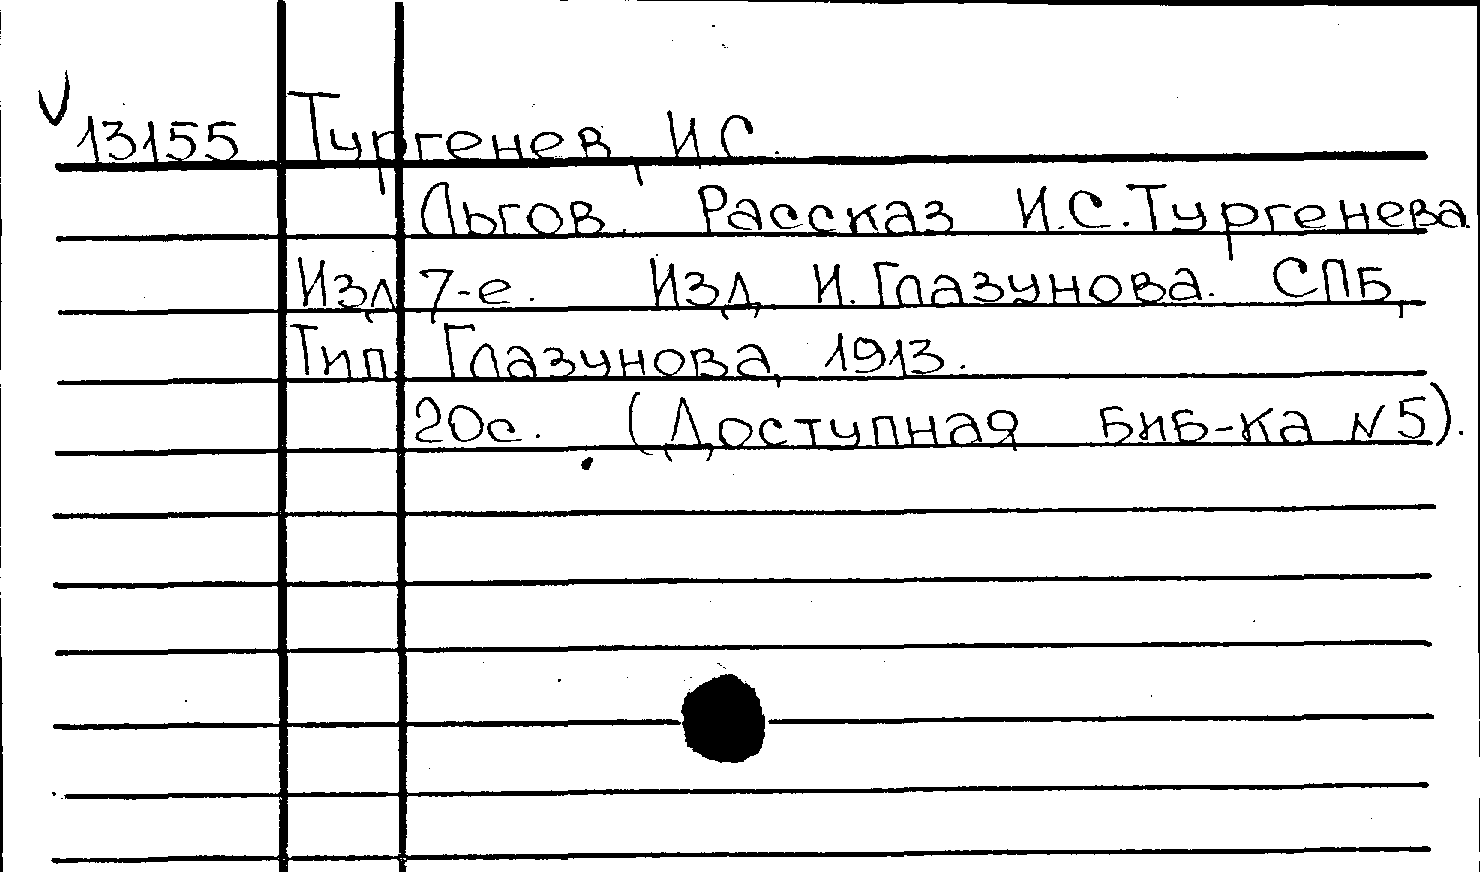 V 13155 Тургенев, И.С.
Льгов. Рассказ И.С.Тургенева
Изд. 7-е. Изд. И.Глазунова. СПБ,
Тип. Глазунова, 1913.
20с. (Доступная биб-ка №5).